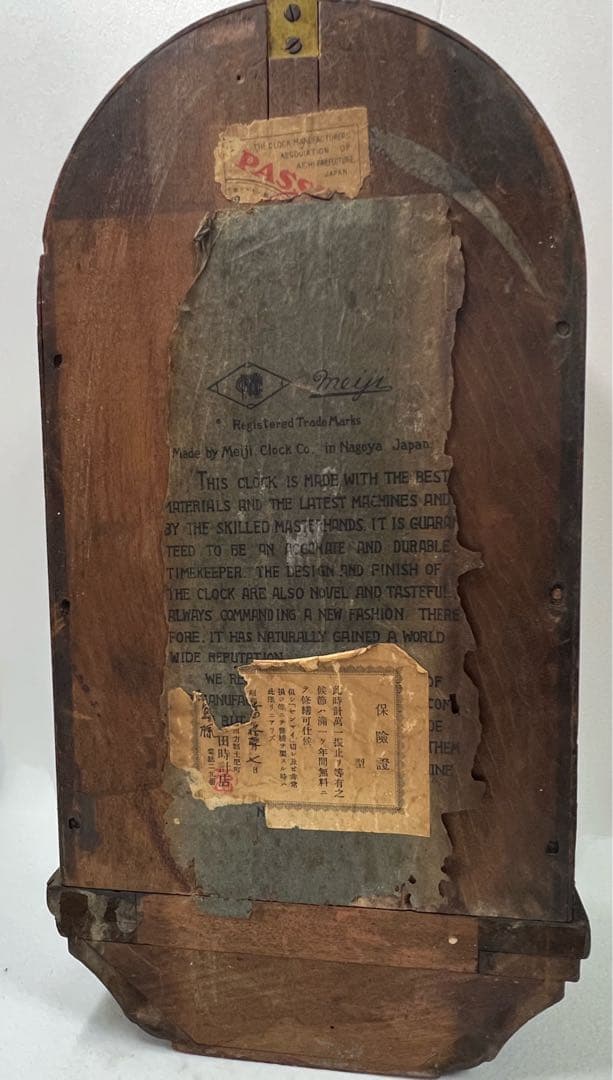 THE CLOCK MANUFACTURERS
ASSOCIATION OF
AICHI PREFECTURE,
JAPAN
PASS
Meiji
Registered Trade Marks
Made by Meiji Clock Co. in Nagoya Japan.
THIS CLOCK IS MADE WITH THE BEST
MATERIALS AND THE LATEST MACHINES AND
BY THE SKILLED MASTERHANDS. IT IS GUARA
TEED TO BE AN ACCURATE AND DURABLE
TIMEKEEPER. THE DESIGN AND FINISH OF
THE CLOCK ARE ALSO NOVEL AND TASTEFUL,
ALWAYS COMMANDING A NEW FASHION. THERE
FORE, IT HAS NATURALLY GAINED A WORLD
WIDE REPUTATION
WE RE OF
MANUFA CON
BUT DE
THEM
INE
保險證
型
此時計萬一振止リ等有之
候節ハ滿一ヶ年間無料ニ
テ修繕可仕候
此限リニアラズ
田時計店